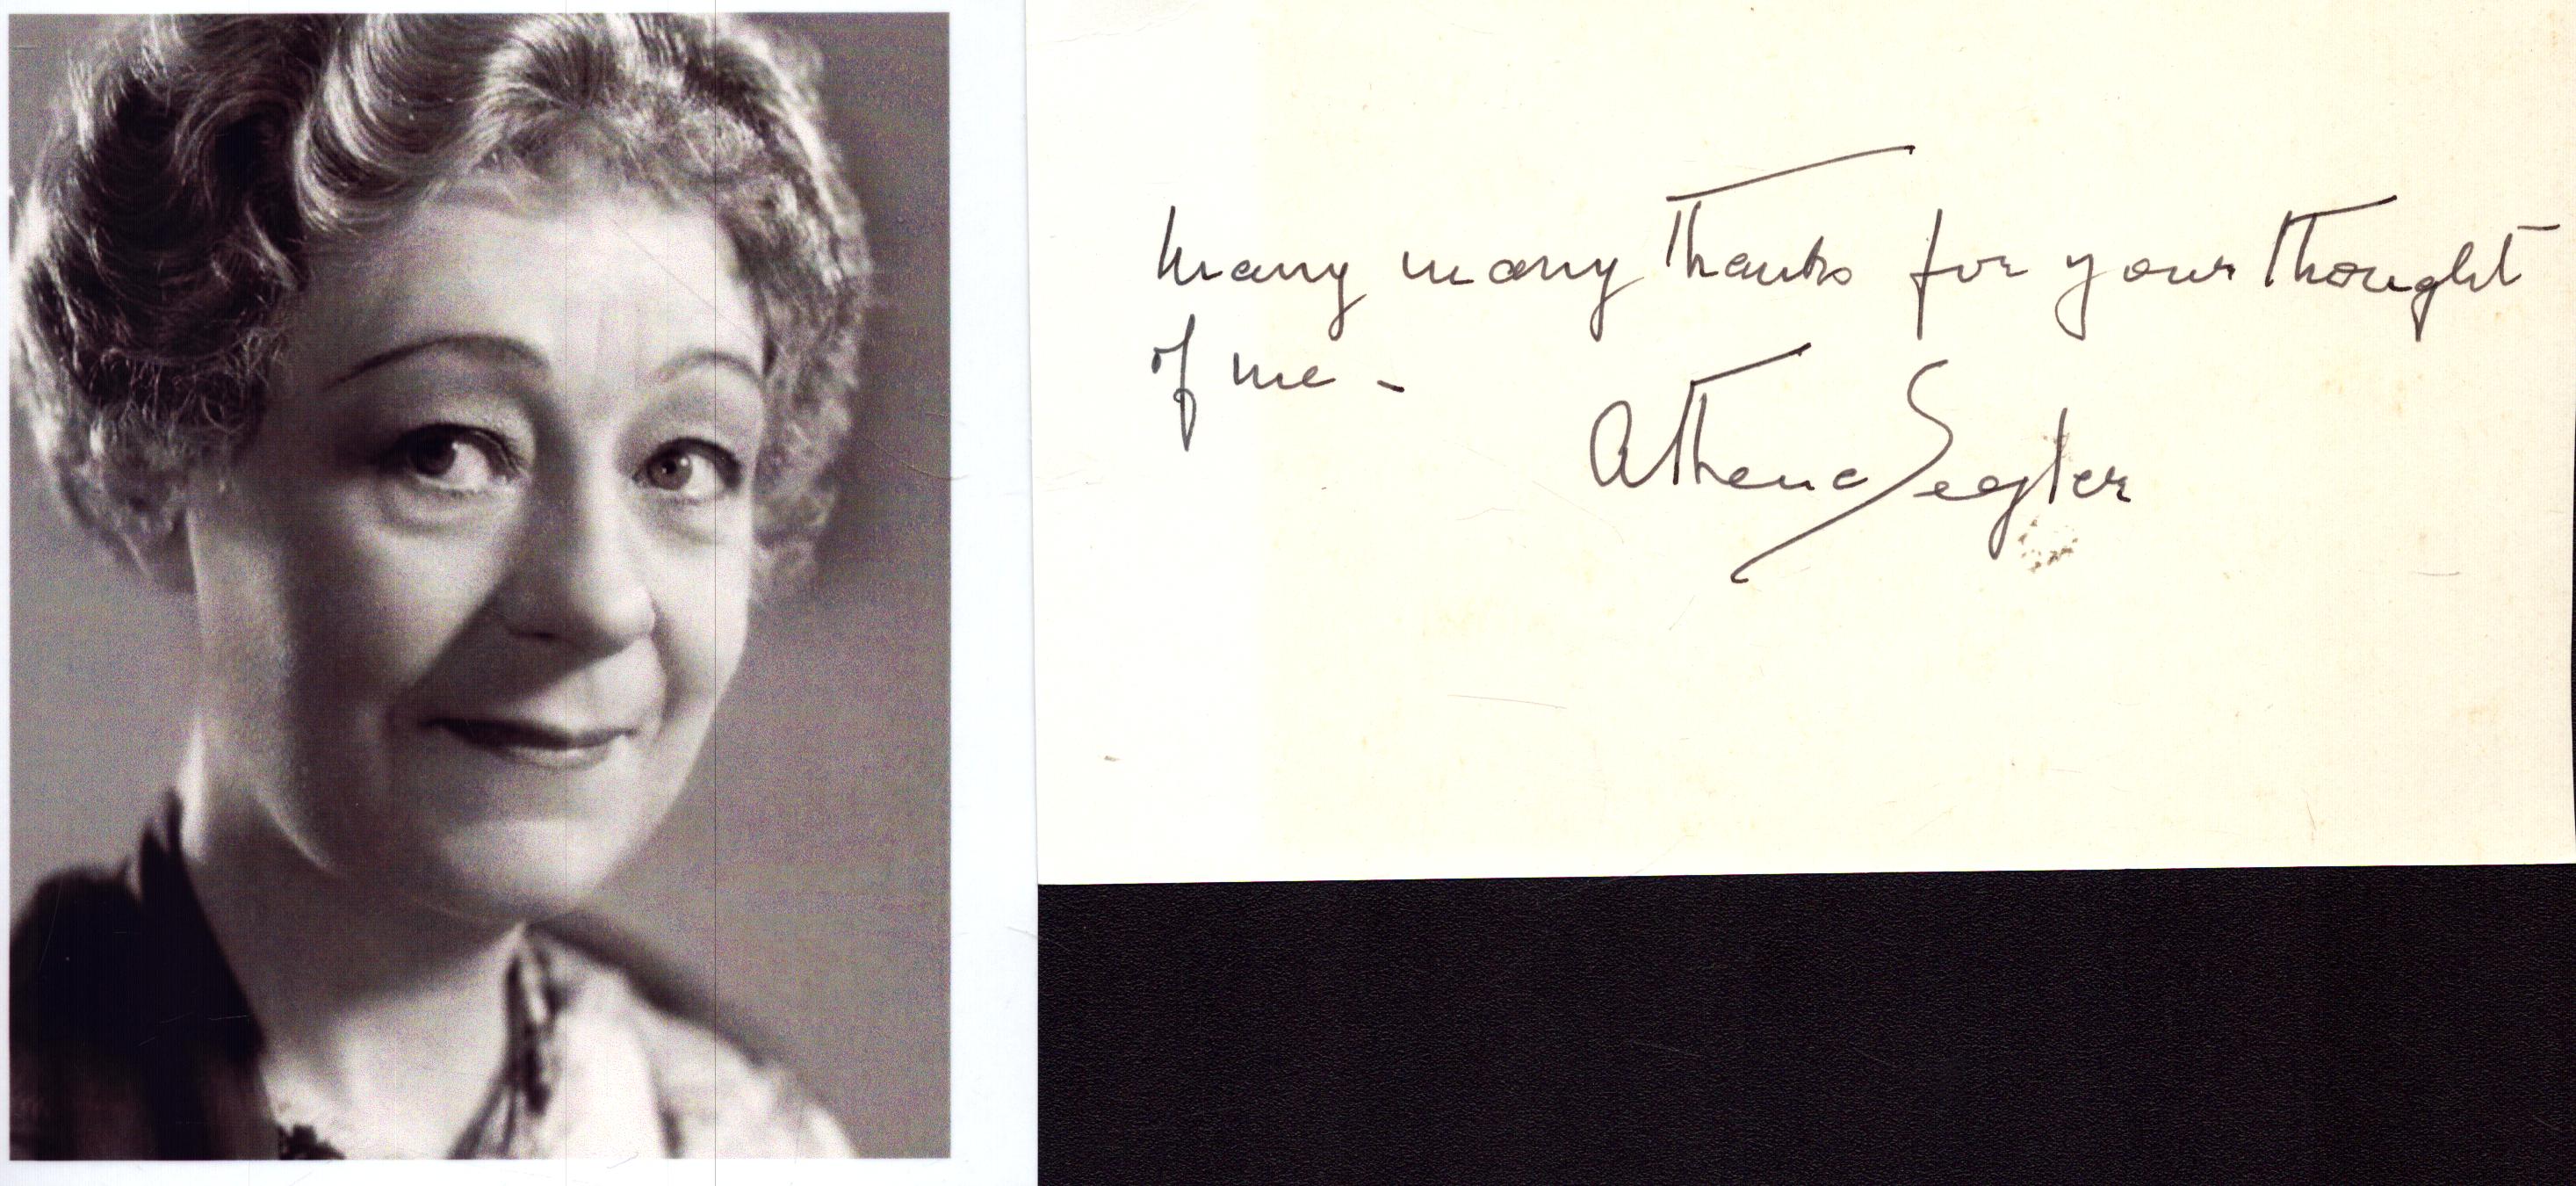 Many many Thanks for your Thought
of me -
Athene Seyler